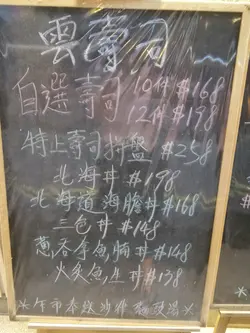 雲壽司
自選壽司 10件 $168
12件 $198
特上壽司拼盤 $258
北海丼 $198
北海道海膽丼 $168
三色丼 $148
蔥吞拿魚腩丼 $148
火炙魚生丼 $138